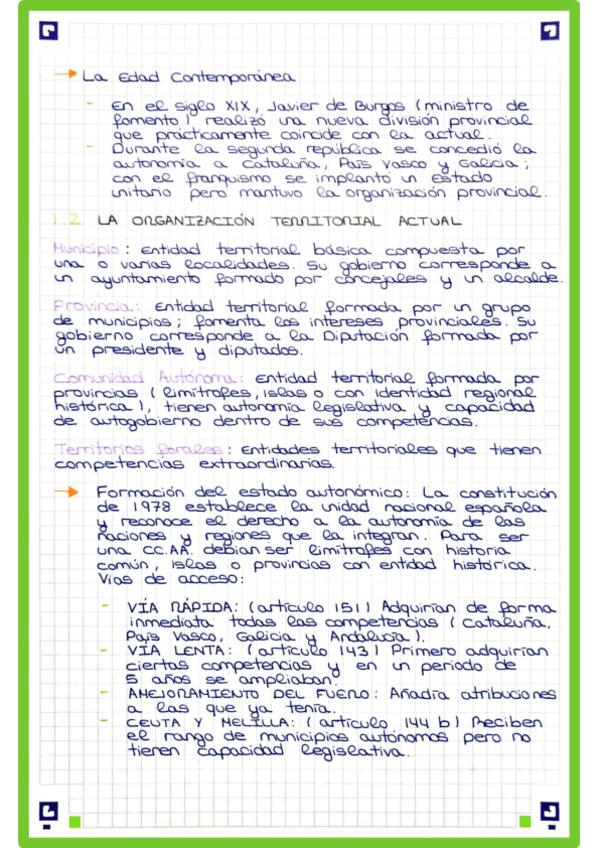 → La Edad Contemporánea
- En el siglo XIX, Javier de Burgos (ministro de
fomento) realizó una nueva división provincial
que prácticamente coincide con la actual.
- Durante la segunda república se concedió la
autonomía a Cataluña, País Vasco y Galicia;
con el franquismo se implantó un Estado
unitario pero mantuvo la organización provincial.
1.2 LA ORGANIZACIÓN TERRITORIAL ACTUAL
Municipio: Entidad territorial básica compuesta por
una o varias localidades. Su gobierno corresponde a
un ayuntamiento formado por concejales y un alcalde.
Provincia: Entidad territorial formada por un grupo
de municipios; fomenta los intereses provinciales. Su
gobierno corresponde a la Diputación formada por
un presidente y diputados.
Comunidad Autónoma: Entidad territorial formada por
provincias (limítrofes, islas o con identidad regional
histórica), tienen autonomía legislativa y capacidad
de autogobierno dentro de sus competencias.
Territorios forales: Entidades territoriales que tienen
competencias extraordinarias.
→ Formación del estado autonómico: La constitución
de 1978 establece la unidad nacional española
y reconoce el derecho a la autonomía de las
naciones y regiones que la integran. Para ser
una CC.AA. debían ser limítrofes con historia
común, islas o provincias con entidad histórica.
Vías de acceso:
- VÍA RÁPIDA: (artículo 151) Adquirían de forma
inmediata todas las competencias (Cataluña,
País Vasco, Galicia y Andalucía).
- VÍA LENTA: (artículo 143) Primero adquirían
ciertas competencias y en un periodo de
5 años se ampliaban.
- AMEJORAMIENTO DEL FUERO: Añadía atribuciones
a las que ya tenía.
- CEUTA Y MELILLA: (artículo 144 b) Reciben
el rango de municipios autónomos pero no
tienen capacidad legislativa.